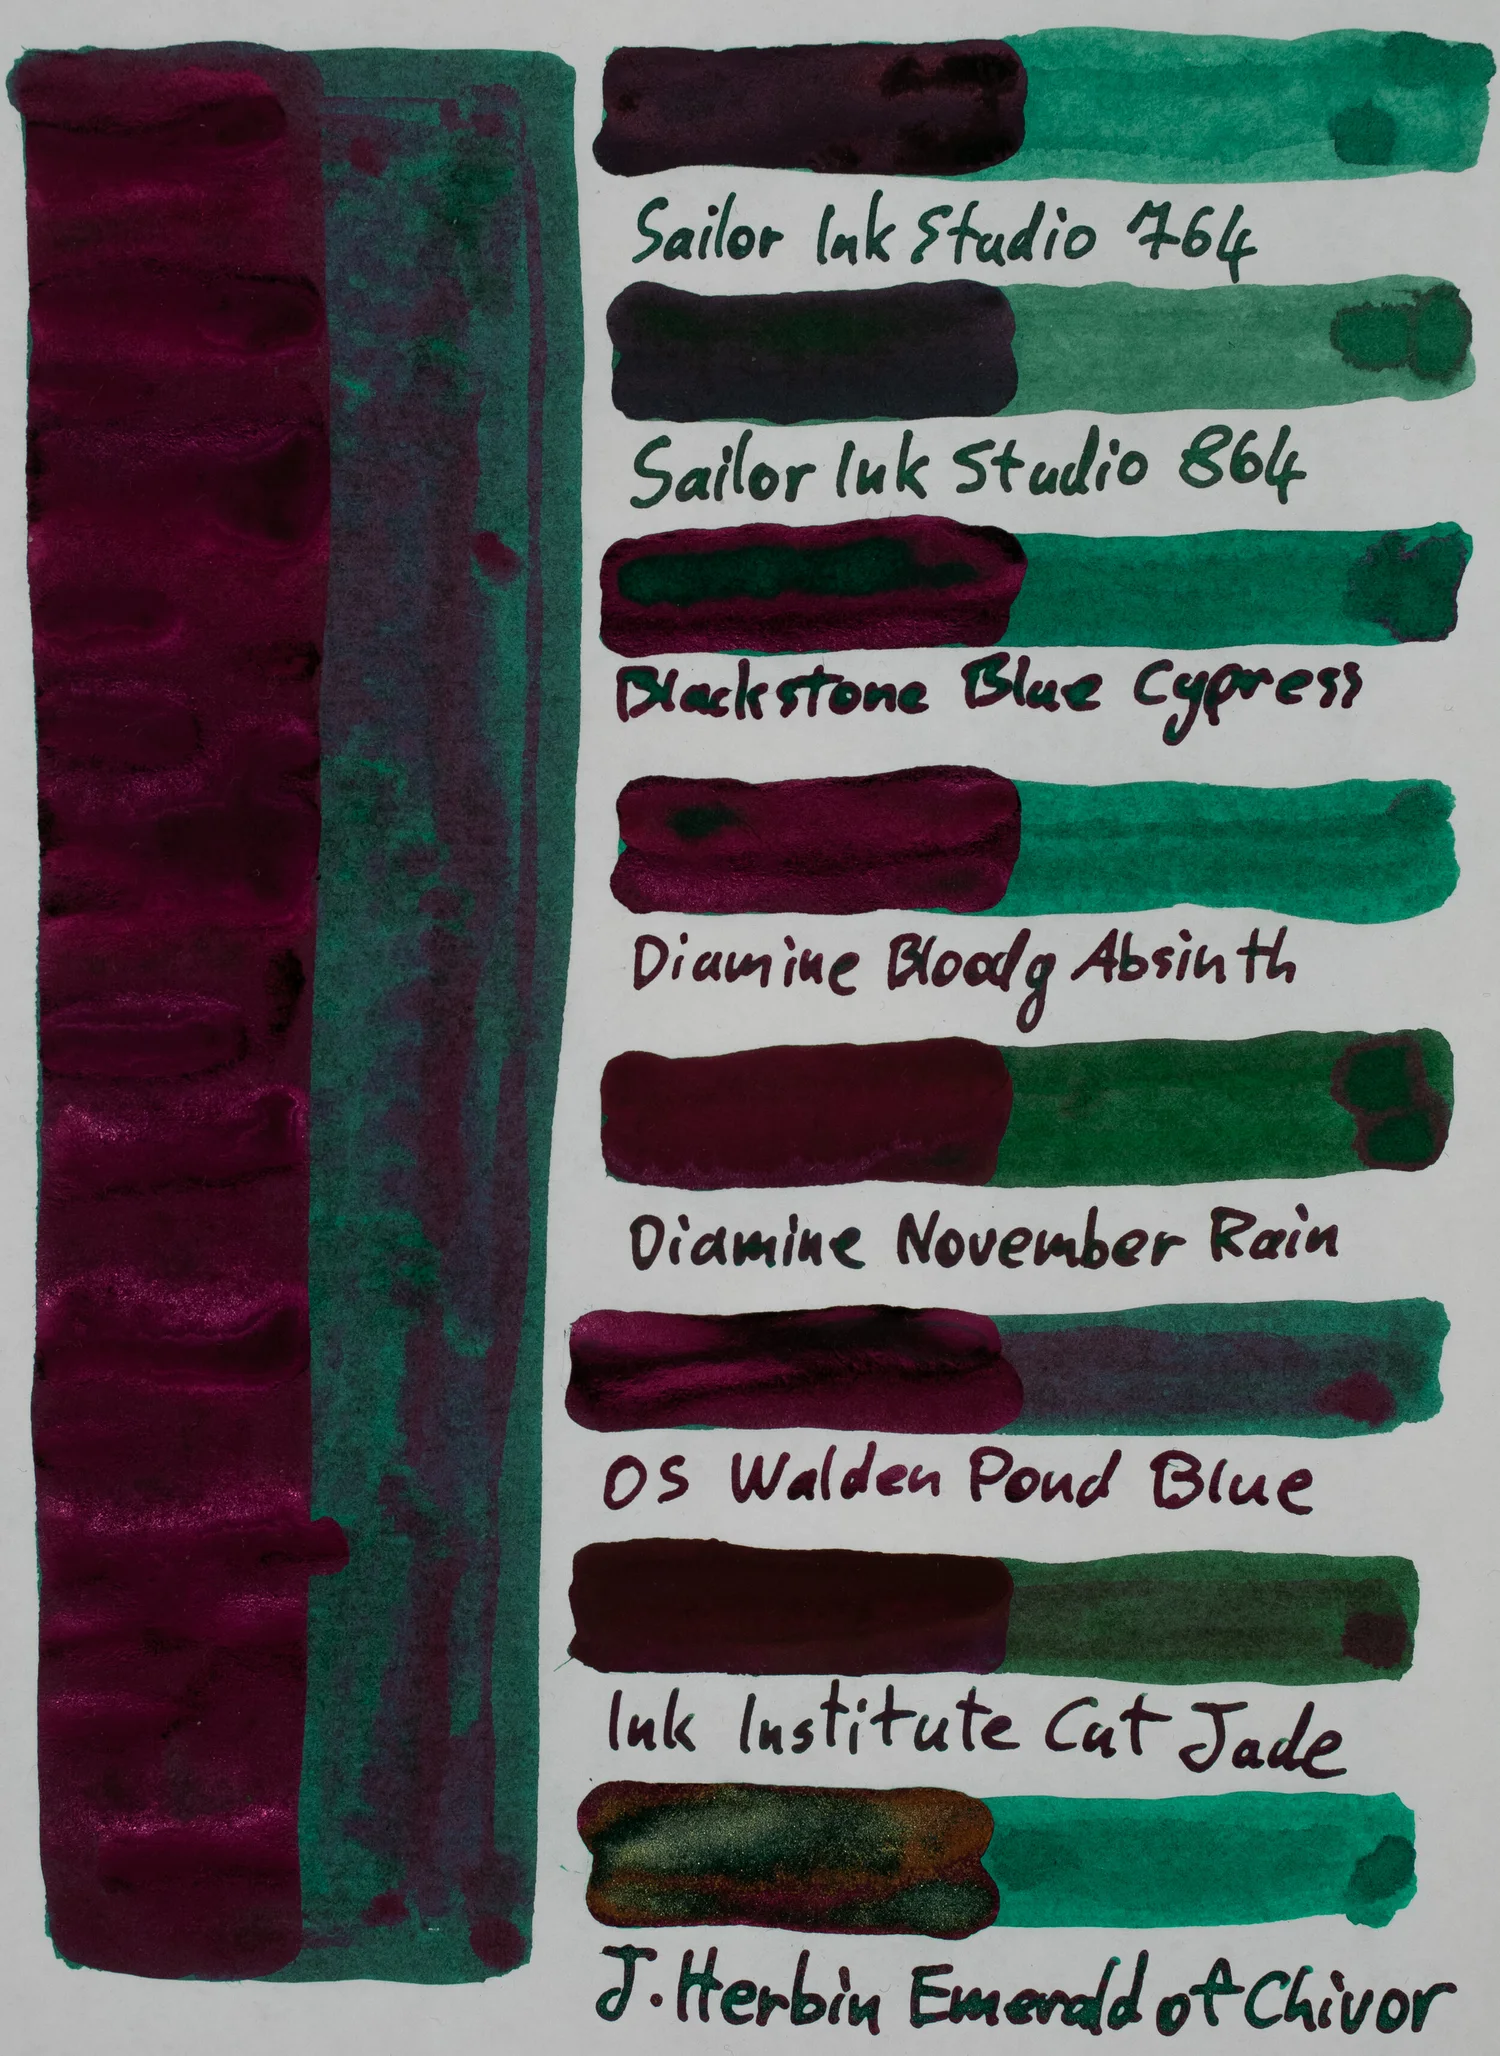 Sailor Ink Studio 764
Sailor Ink Studio 864
Blackstone Blue Cypress
Diamine Bloody Absinth
Diamine November Rain
OS Walden Pond Blue
Ink Institute Cat Jade
J. Herbin Emerald of Chivor